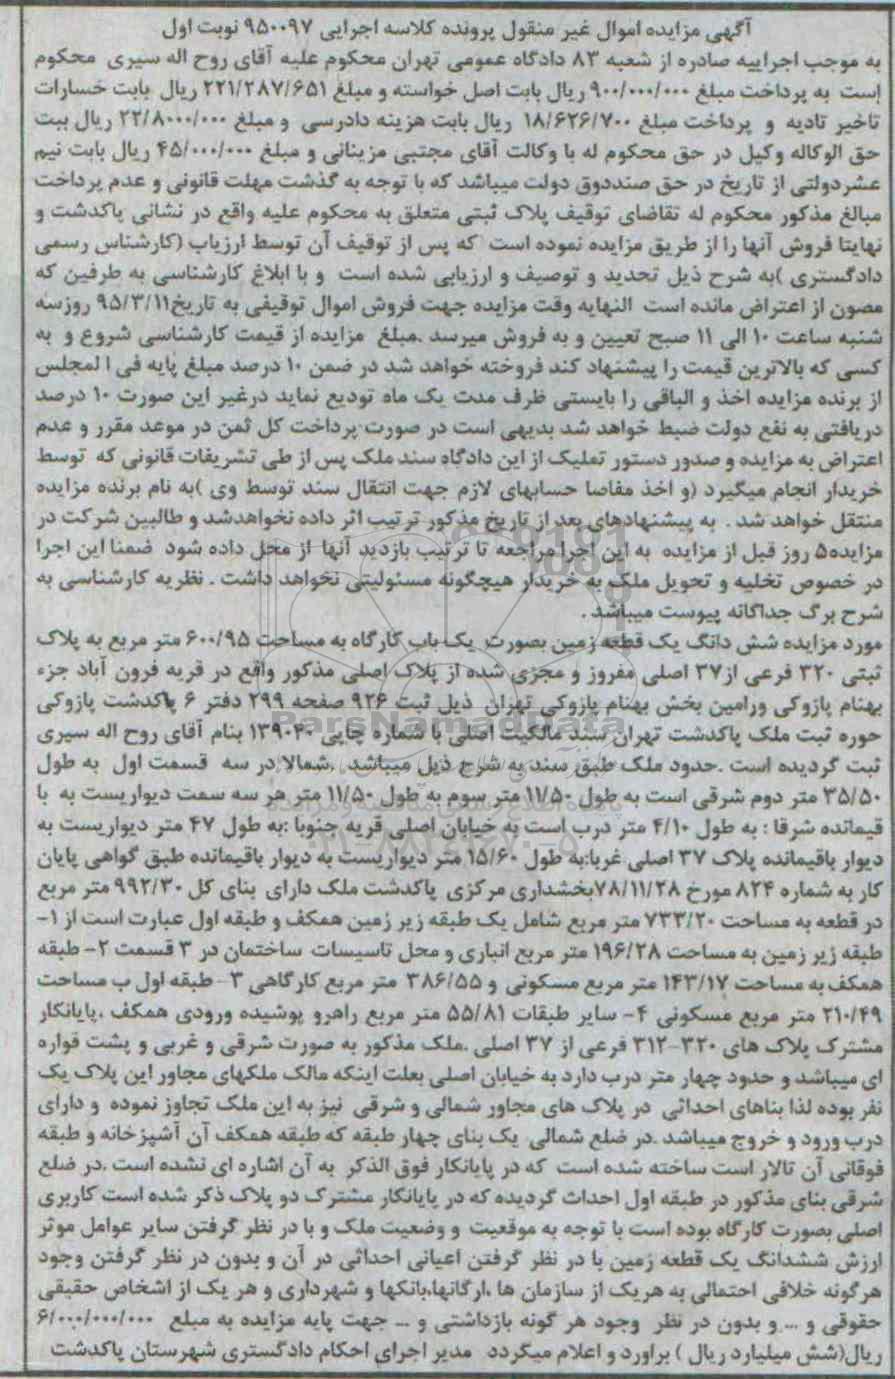 آگهی مزایده اموال غیر منقول پرونده کلاسه اجرایی ۹۵۰۰۹۷ نوبت اول
به موجب اجراییه صادره از شعبه ۸۳ دادگاه عمومی تهران محکوم علیه آقای روح اله سیری محکوم
است به پرداخت مبلغ ۹۰۰/۰۰۰/۰۰۰ ریال بابت اصل خواسته و مبلغ ۲۲۱/۲۸۷/۶۵۱ ریال بابت خسارات
تاخیر تادیه و پرداخت مبلغ ۱۸/۶۲۶/۷۰۰ ریال بابت هزینه دادرسی و مبلغ ۲۲/۸۰۰۰/۰۰۰ ریال بیت
حق الوکاله وکیل در حق محکوم له با وکالت آقای مجتبی مزینانی و مبلغ ۴۵/۰۰۰/۰۰۰ ریال بابت نیم
عشردولتی از تاریخ در حق صنددوق دولت میباشد که با توجه به گذشت مهلت قانونی و عدم پرداخت
مبالغ مذکور محکوم له تقاضای توقیف پلاک ثبتی متعلق به محکوم علیه واقع در نشانی پاکدشت و
نهایتا فروش آنها را از طریق مزایده نموده است که پس از توقیف آن توسط ارزیاب (کارشناس رسمی
دادگستری )به شرح ذیل تحدید و توصیف و ارزیابی شده است و با ابلاغ کارشناسی به طرفین که
مصون از اعتراض مانده است النهایه وقت مزایده جهت فروش اموال توقیفی به تاریخ۹۵/۳/۱۱ روزسه
شنبه ساعت ۱۰ الی ۱۱ صبح تعیین و به فروش میرسد .مبلغ مزایده از قیمت کارشناسی شروع و به
کسی که بالاترین قیمت را پیشنهاد کند فروخته خواهد شد در ضمن ۱۰ درصد مبلغ پایه فی المجلس
از برنده مزایده اخذ و الباقی را بایستی ظرف مدت یک ماه تودیع نماید درغیر این صورت ۱۰ درصد
دریافتی به نفع دولت ضبط خواهد شد بدیهی است در صورت پرداخت کل ثمن در موعد مقرر و عدم
اعتراض به مزایده و صدور دستور تملیک از این دادگاه سند ملک پس از طی تشریفات قانونی که توسط
خریدار انجام میگیرد (و اخذ مفاصا حسابهای لازم جهت انتقال سند توسط وی )به نام برنده مزایده
منتقل خواهد شد . به پیشنهادهای بعد از تاریخ مذکور ترتیب اثر داده نخواهدشد و طالبین شرکت در
مزایده۵ روز قبل از مزایده به این اجرا مراجعه تا ترتیب بازدید آنها از محل داده شود ضمنا این اجرا
در خصوص تخلیه و تحویل ملک به خریدار هیچگونه مسئولیتی نخواهد داشت . نظریه کارشناسی به
شرح برگ جداگانه پیوست میباشد .
مورد مزایده شش دانگ یک قطعه زمین بصورت یک باب کارگاه به مساحت ۶۰۰/۹۵ متر مربع به پلاک
ثبتی ۳۲۰ فرعی از۳۷ اصلی مفروز و مجزی شده از پلاک اصلی مذکور واقع در قریه فرون آباد جزء
بهنام پازوکی ورامین بخش بهنام پازوکی تهران ذیل ثبت ۹۲۶ صفحه ۲۹۹ دفتر ۶ پاکدشت پازوکی
حوزه ثبت ملک پاکدشت تهران سند مالکیت اصلی با شماره چاپی ۱۳۹۰۴۰ بنام آقای روح اله سیری
ثبت گردیده است .حدود ملک طبق سند به شرح ذیل میباشد .شمالا:در سه قسمت اول به طول
۳۵/۵۰ متر دوم شرقی است به طول ۱۱/۵۰ متر سوم به طول ۱۱/۵۰ متر هر سه سمت دیواریست به با
قیمانده شرقا : به طول ۴/۱۰ متر درب است به خیابان اصلی قریه جنوبا :به طول ۴۷ متر دیواریست به
دیوار باقیمانده پلاک ۳۷ اصلی غربا:به طول ۱۵/۶۰ متر دیواریست به دیوار باقیمانده طبق گواهی پایان
کار به شماره ۸۲۴ مورخ ۷۸/۱۱/۲۸بخشداری مرکزی پاکدشت ملک دارای بنای کل ۹۹۲/۳۰ متر مربع
در قطعه به مساحت ۷۳۳/۲۰ متر مربع شامل یک طبقه زیر زمین همکف و طبقه اول عبارت است از ۱-
طبقه زیر زمین به مساحت ۱۹۶/۲۸ متر مربع انباری و محل تاسیسات ساختمان در ۳ قسمت ۲- طبقه
همکف به مساحت ۱۴۳/۱۷ متر مربع مسکونی و ۳۸۶/۵۵ متر مربع کارگاهی ۳- طبقه اول ب مساحت
۲۱۰/۴۹ متر مربع مسکونی ۴- سایر طبقات ۵۵/۸۱ متر مربع راهرو پوشیده ورودی همکف .پایانکار
مشترک پلاک های ۳۲۰-۳۱۲ فرعی از ۳۷ اصلی .ملک مذکور به صورت شرقی و غربی و پشت قواره
ای میباشد و حدود چهار متر درب دارد به خیابان اصلی بعلت اینکه مالک ملکهای مجاور این پلاک یک
نفر بوده لذا بناهای احداثی در پلاک های مجاور شمالی و شرقی نیز به این ملک تجاوز نموده و دارای
درب ورود و خروج میباشد .در ضلع شمالی یک بنای چهار طبقه که طبقه همکف آن آشپزخانه و طبقه
فوقانی آن تالار است ساخته شده است که در پایانکار فوق الذکر به آن اشاره ای نشده است .در ضلع
شرقی بنای مذکور در طبقه اول احداث گردیده که در پایانکار مشترک دو پلاک ذکر شده است کاربری
اصلی بصورت کارگاه بوده است با توجه به موقعیت و وضعیت ملک و با در نظر گرفتن سایر عوامل موثر
ارزش ششدانگ یک قطعه زمین با در نظر گرفتن اعیانی احداثی در آن و بدون در نظر گرفتن وجود
هرگونه خلافی احتمالی به هریک از سازمان ها ،ارگانها،بانکها و شهرداری و هر یک از اشخاص حقیقی
حقوقی و ... و بدون در نظر وجود هر گونه بازداشتی و ... جهت پایه مزایده به مبلغ ۶/۰۰۰/۰۰۰/۰۰۰
ریال(شش میلیارد ریال ) براورد و اعلام میگردد مدیر اجرای احکام دادگستری شهرستان پاکدشت
ParsNamadData